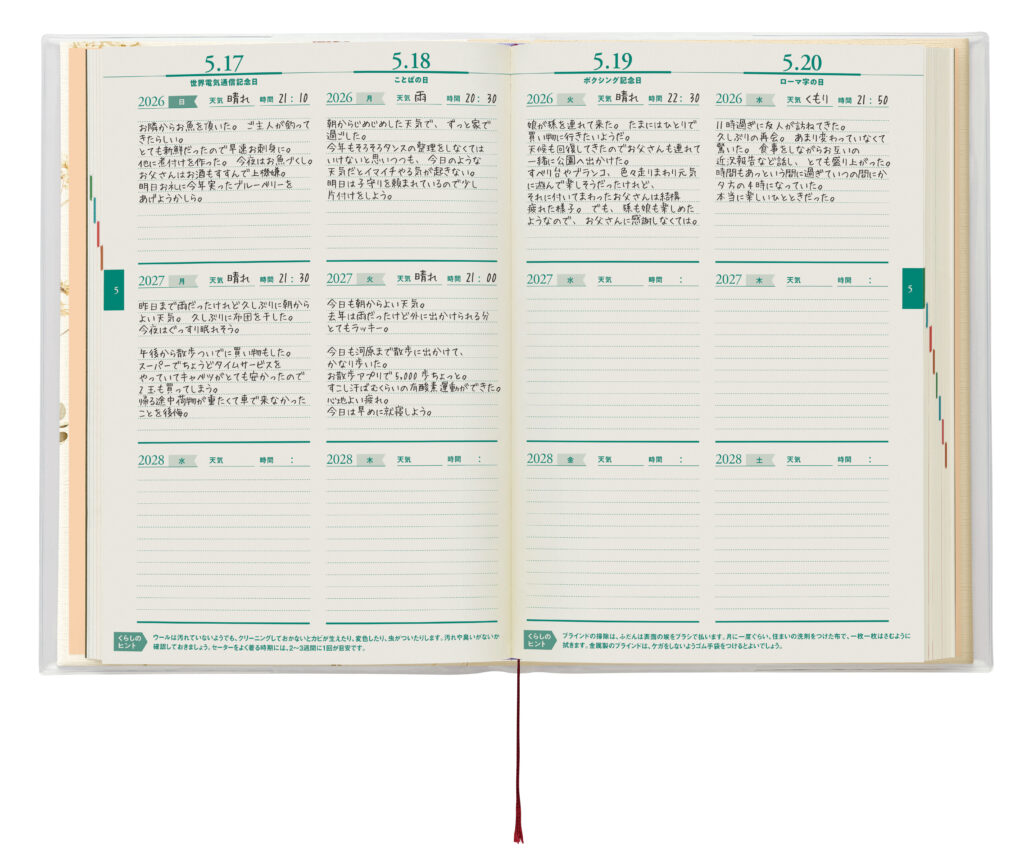 5.17
世界電気通信記念日
2026 日 天気 晴れ 時間 21:10
お隣からお魚を頂いた。ご主人が釣って
きたらしい。
とても新鮮だったので早速お刺身に。
他に煮付けを作った。今夜はお魚づくし。
お父さんはお酒もすすんで上機嫌。
明日お礼に今年実ったブルーベリーを
あげようかしら。
2027 月 天気 晴れ 時間 21:30
昨日まで雨だったけれど久しぶりに朝から
よい天気。久しぶりに布団を干した。
今夜はぐっすり眠れそう。
午後から散歩ついでに買い物もした。
スーパーでちょうどタイムサービスを
やっていてキャベツがとても安かったので
2玉も買ってしまう。
帰る途中荷物が重たくて車で来なかった
ことを後悔。
2028 水 天気 時間 :
5.18
ことばの日
2026 月 天気 雨 時間 20:30
朝からじめじめした天気で、ずっと家で
過ごした。
今年もそろそろタンスの整理をしなくては
いけないと思いつつも、今日のような
天気だとイマイチやる気が起きない。
明日は子守りを頼まれているので少し
片付けをしよう。
2027 火 天気 晴れ 時間 21:00
今日も朝からよい天気。
去年は雨だったけど外に出かけられる分
とてもラッキー。
今日も河原まで散歩に出かけて、
かなり歩いた。
お散歩アプリで5,000歩ちょっと。
すこし汗ばむくらいの有酸素運動ができた。
心地よい疲れ。
今日は早めに就寝しよう。
2028 木 天気 時間 :
5
くらしの
ヒント
ウールは汚れていないようでも、クリーニングしておかないとカビが生えたり、変色したり、虫がついたりします。汚れや臭いがないか
確認しておきましょう。セーターをよく着る時期には、2〜3週間に1回が目安です。
5.19
ボクシング記念日
2026 火 天気 晴れ 時間 22:30
娘が孫を連れて来た。たまにはひとりで
買い物に行きたいようだ。
天候も回復してきたのでお父さんも連れて
一緒に公園へ出かけた。
すべり台やブランコ、色々走りまわり元気
に遊んで楽しそうだったけれど、
それに付いてまわったお父さんは結構
疲れた様子。でも、孫も娘も楽しめた
ようなので、お父さんに感謝しなくては。
2027 水 天気 時間 :
2028 金 天気 時間 :
5.20
ローマ字の日
2026 水 天気 くもり 時間 21:50
11時過ぎに友人が訪ねてきた。
久しぶりの再会。あまり変わっていなくて
驚いた。食事をしながらお互いの
近況報告など話し、とても盛り上がった。
時間もあっという間に過ぎていつの間にか
夕方の4時になっていた。
本当に楽しいひとときだった。
2027 木 天気 時間 :
2028 土 天気 時間 :
5
くらしの
ヒント
ブラインドの掃除は、ふだんは表面の埃をブラシで払います。月に一度ぐらい、住まいの洗剤をつけた布で、一枚一枚はさむように
拭きます。金属製のブラインドは、ケガをしないようゴム手袋をつけるとよいでしょう。